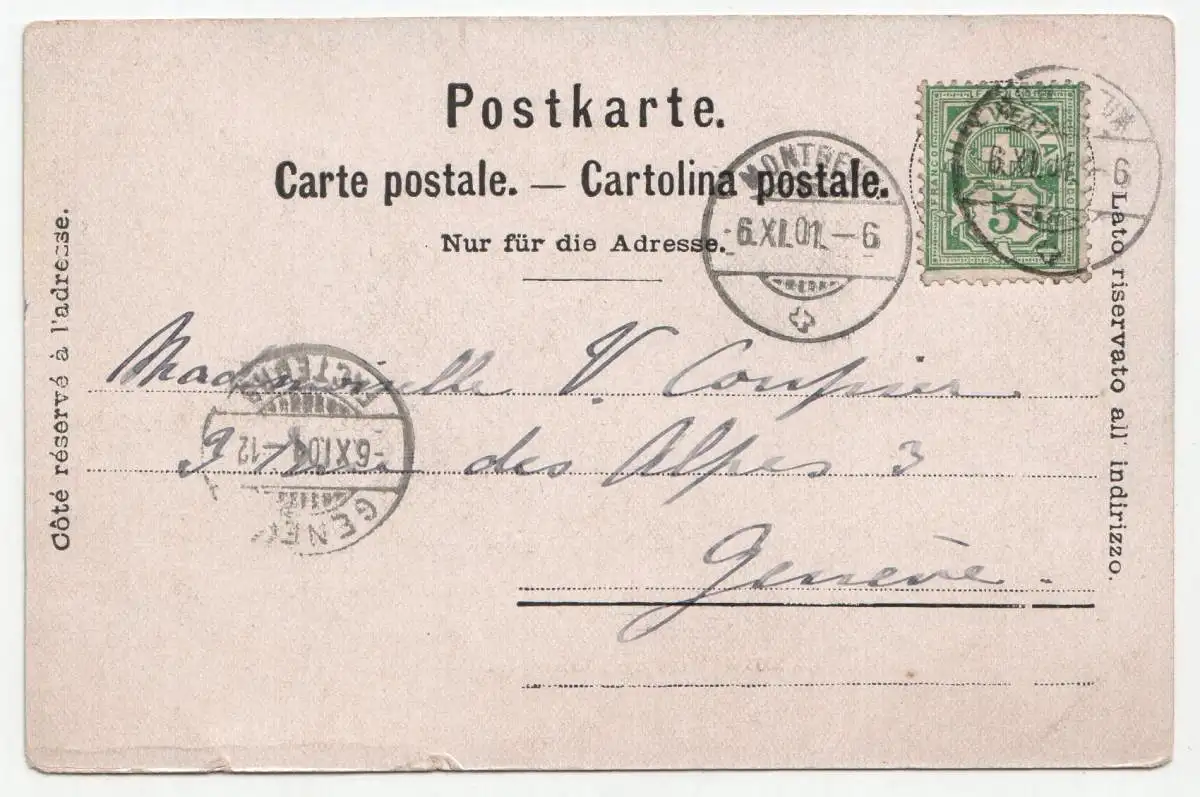 Postkarte.
Carte postale. — Cartolina postale.
Nur für die Adresse.
Côté réservé à l'adresse.
Lato riservato all' indirizzo.
FRANCO
5
6.XI.01.-6
MONTREUX
-6.XI.01.-6
-6.XI.01-12
GENÈ
Mademoiselle V. Coupier.
3 rue des Alpes 3
Genève.